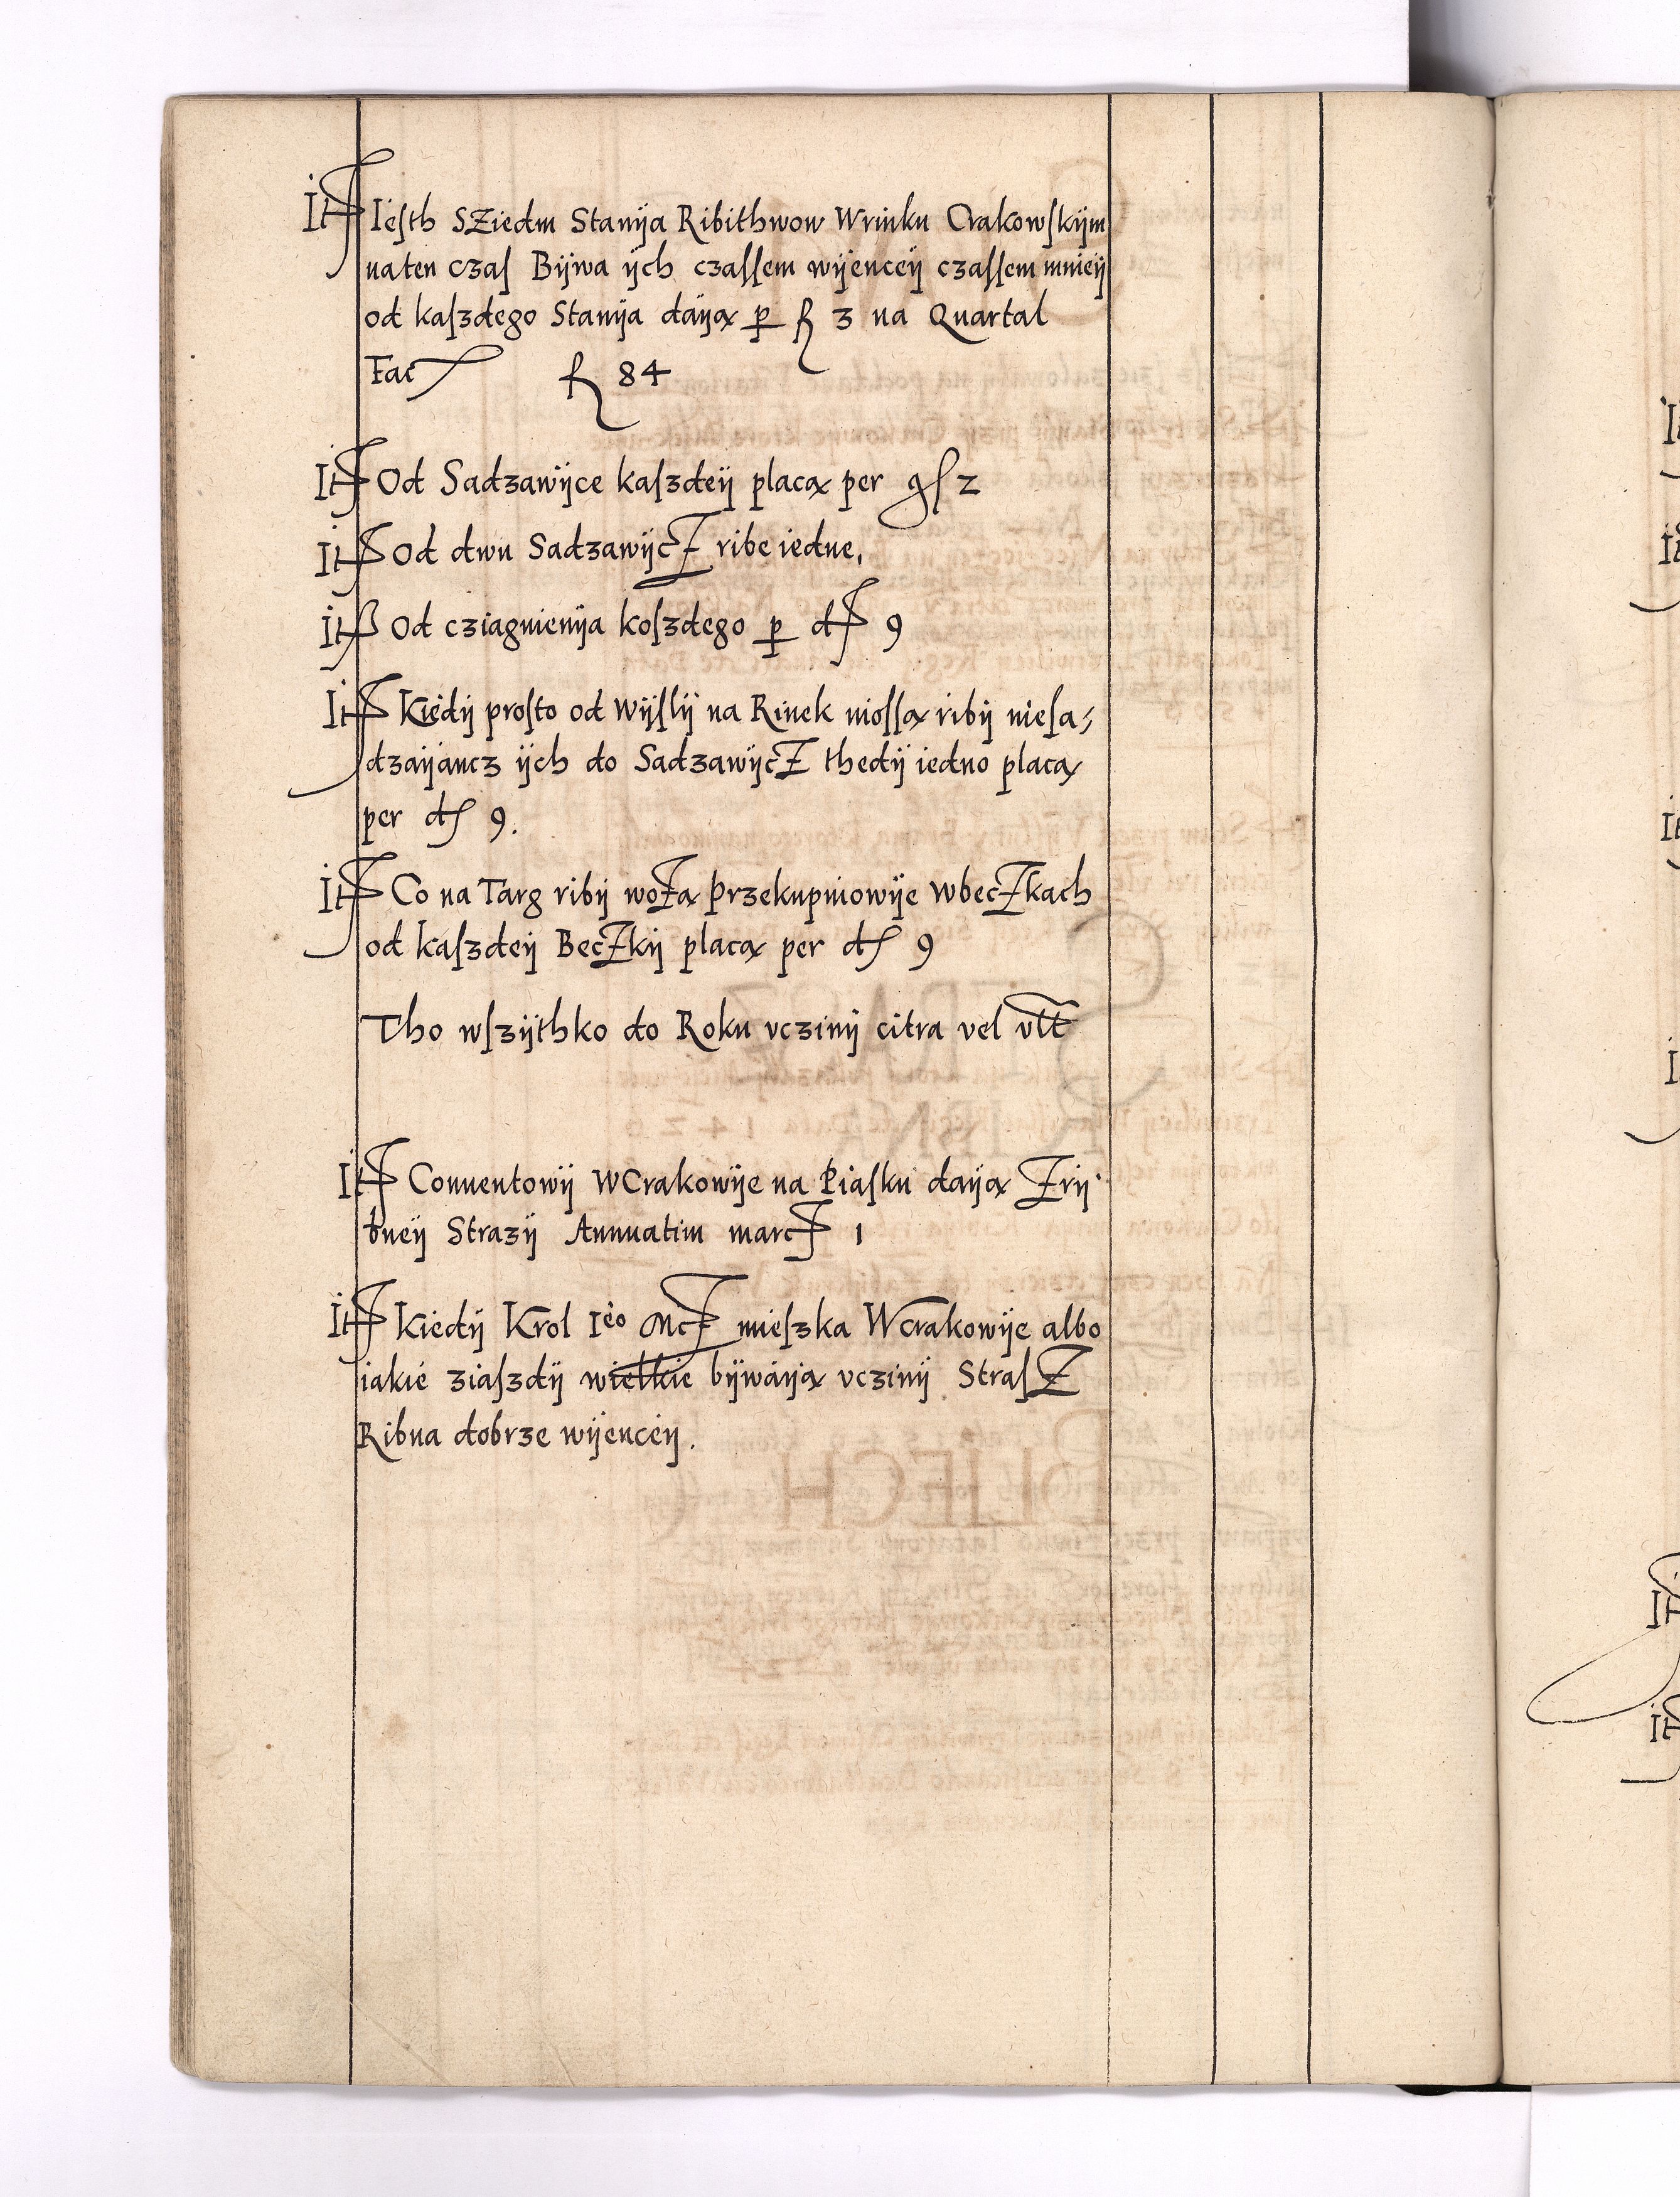 It Iesth SZiedm Stanÿa Ribithwow Wrinku Crakowskÿm
naten czas Bÿwa ÿch czassem wÿencÿ czassem mnieÿ
od kaszdego Stanÿa daÿą p fl 3 na Quartal
Fac fl 84
It Od Sadzawÿce kaszdeÿ placą per gs 2
It Od dwu SadzawÿcZ ribe iedne,
It Od cziagnienÿa koszdego p d 9
It Kiedÿ prosto od Wÿslÿ na Rinek niossą ribÿ niesa-
dzaÿancz ÿch do SadzawÿcZ thedÿ iedno placą
per d 9.
It Co na Targ ribÿ woZą Przekupniowÿe WbecZkach
od kaszdeÿ BecZkÿ placą per d 9
Tho wszÿthko do Roku vczinÿ citra vel vlt
It Conuentowÿ WCrakowÿe na Piasku daÿą Zrÿ
bneÿ Strazÿ Annuatim marc 1
It Kiedÿ Krol Ieo Mc mieszka WCrakowÿe albo
iakie ziaszdÿ wielkie bÿwaÿą vczinÿ StrasZ
Ribna dobrze wÿenceÿ.